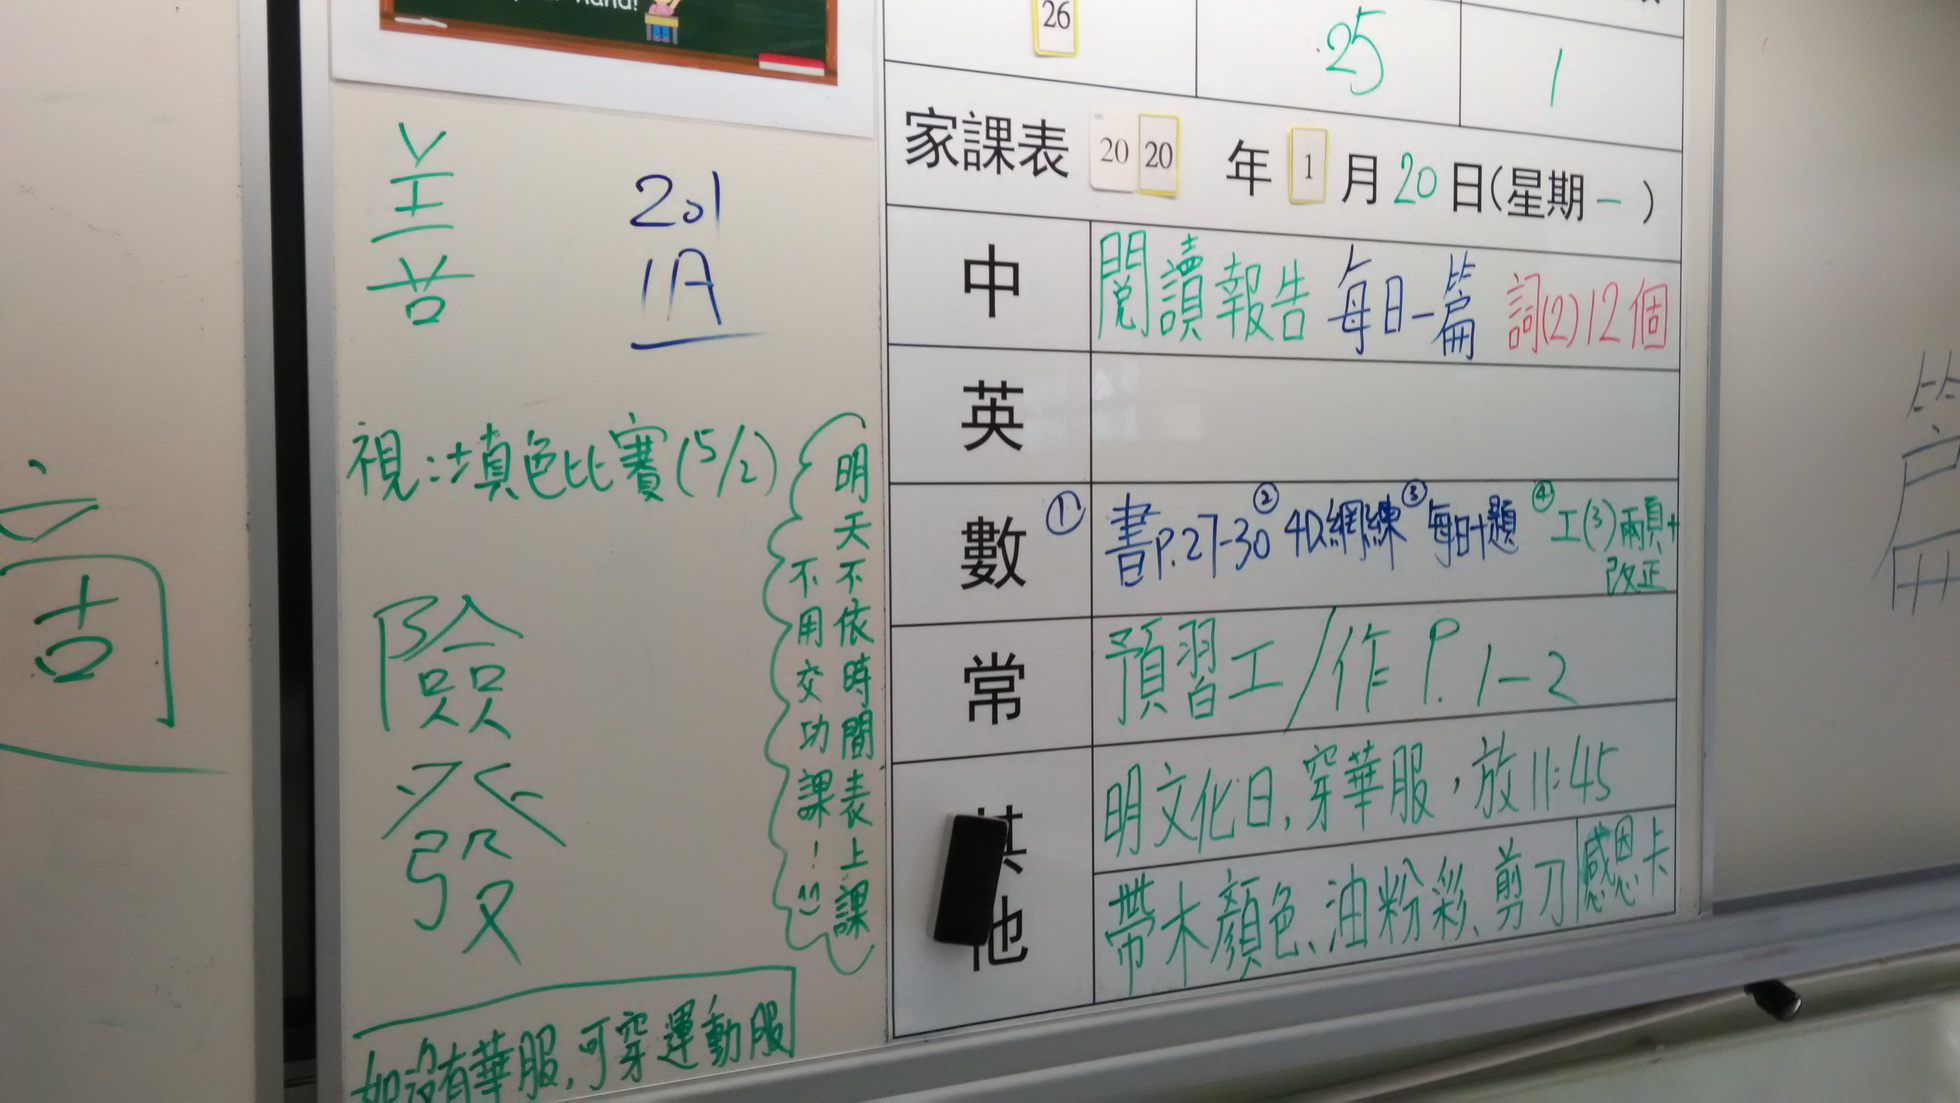 26
25
1
家課表 2020 年 1 月 20 日(星期一)
中 閱讀報告 每日一篇 詞(2)12個
英
數 ① 書P.27-30 ② 4D網練 ③ 每日十題 ④ 工(3)兩頁+
改正
常 預習工/作 P.1-2
其他 明文化日,穿華服,放11:45
帶木顏色、油粉彩、剪刀 感恩卡
善
201
1A
視:填色比賽(5/2)
明天不依時間表上課
不用交功課!
險
發
如沒有華服,可穿運動服